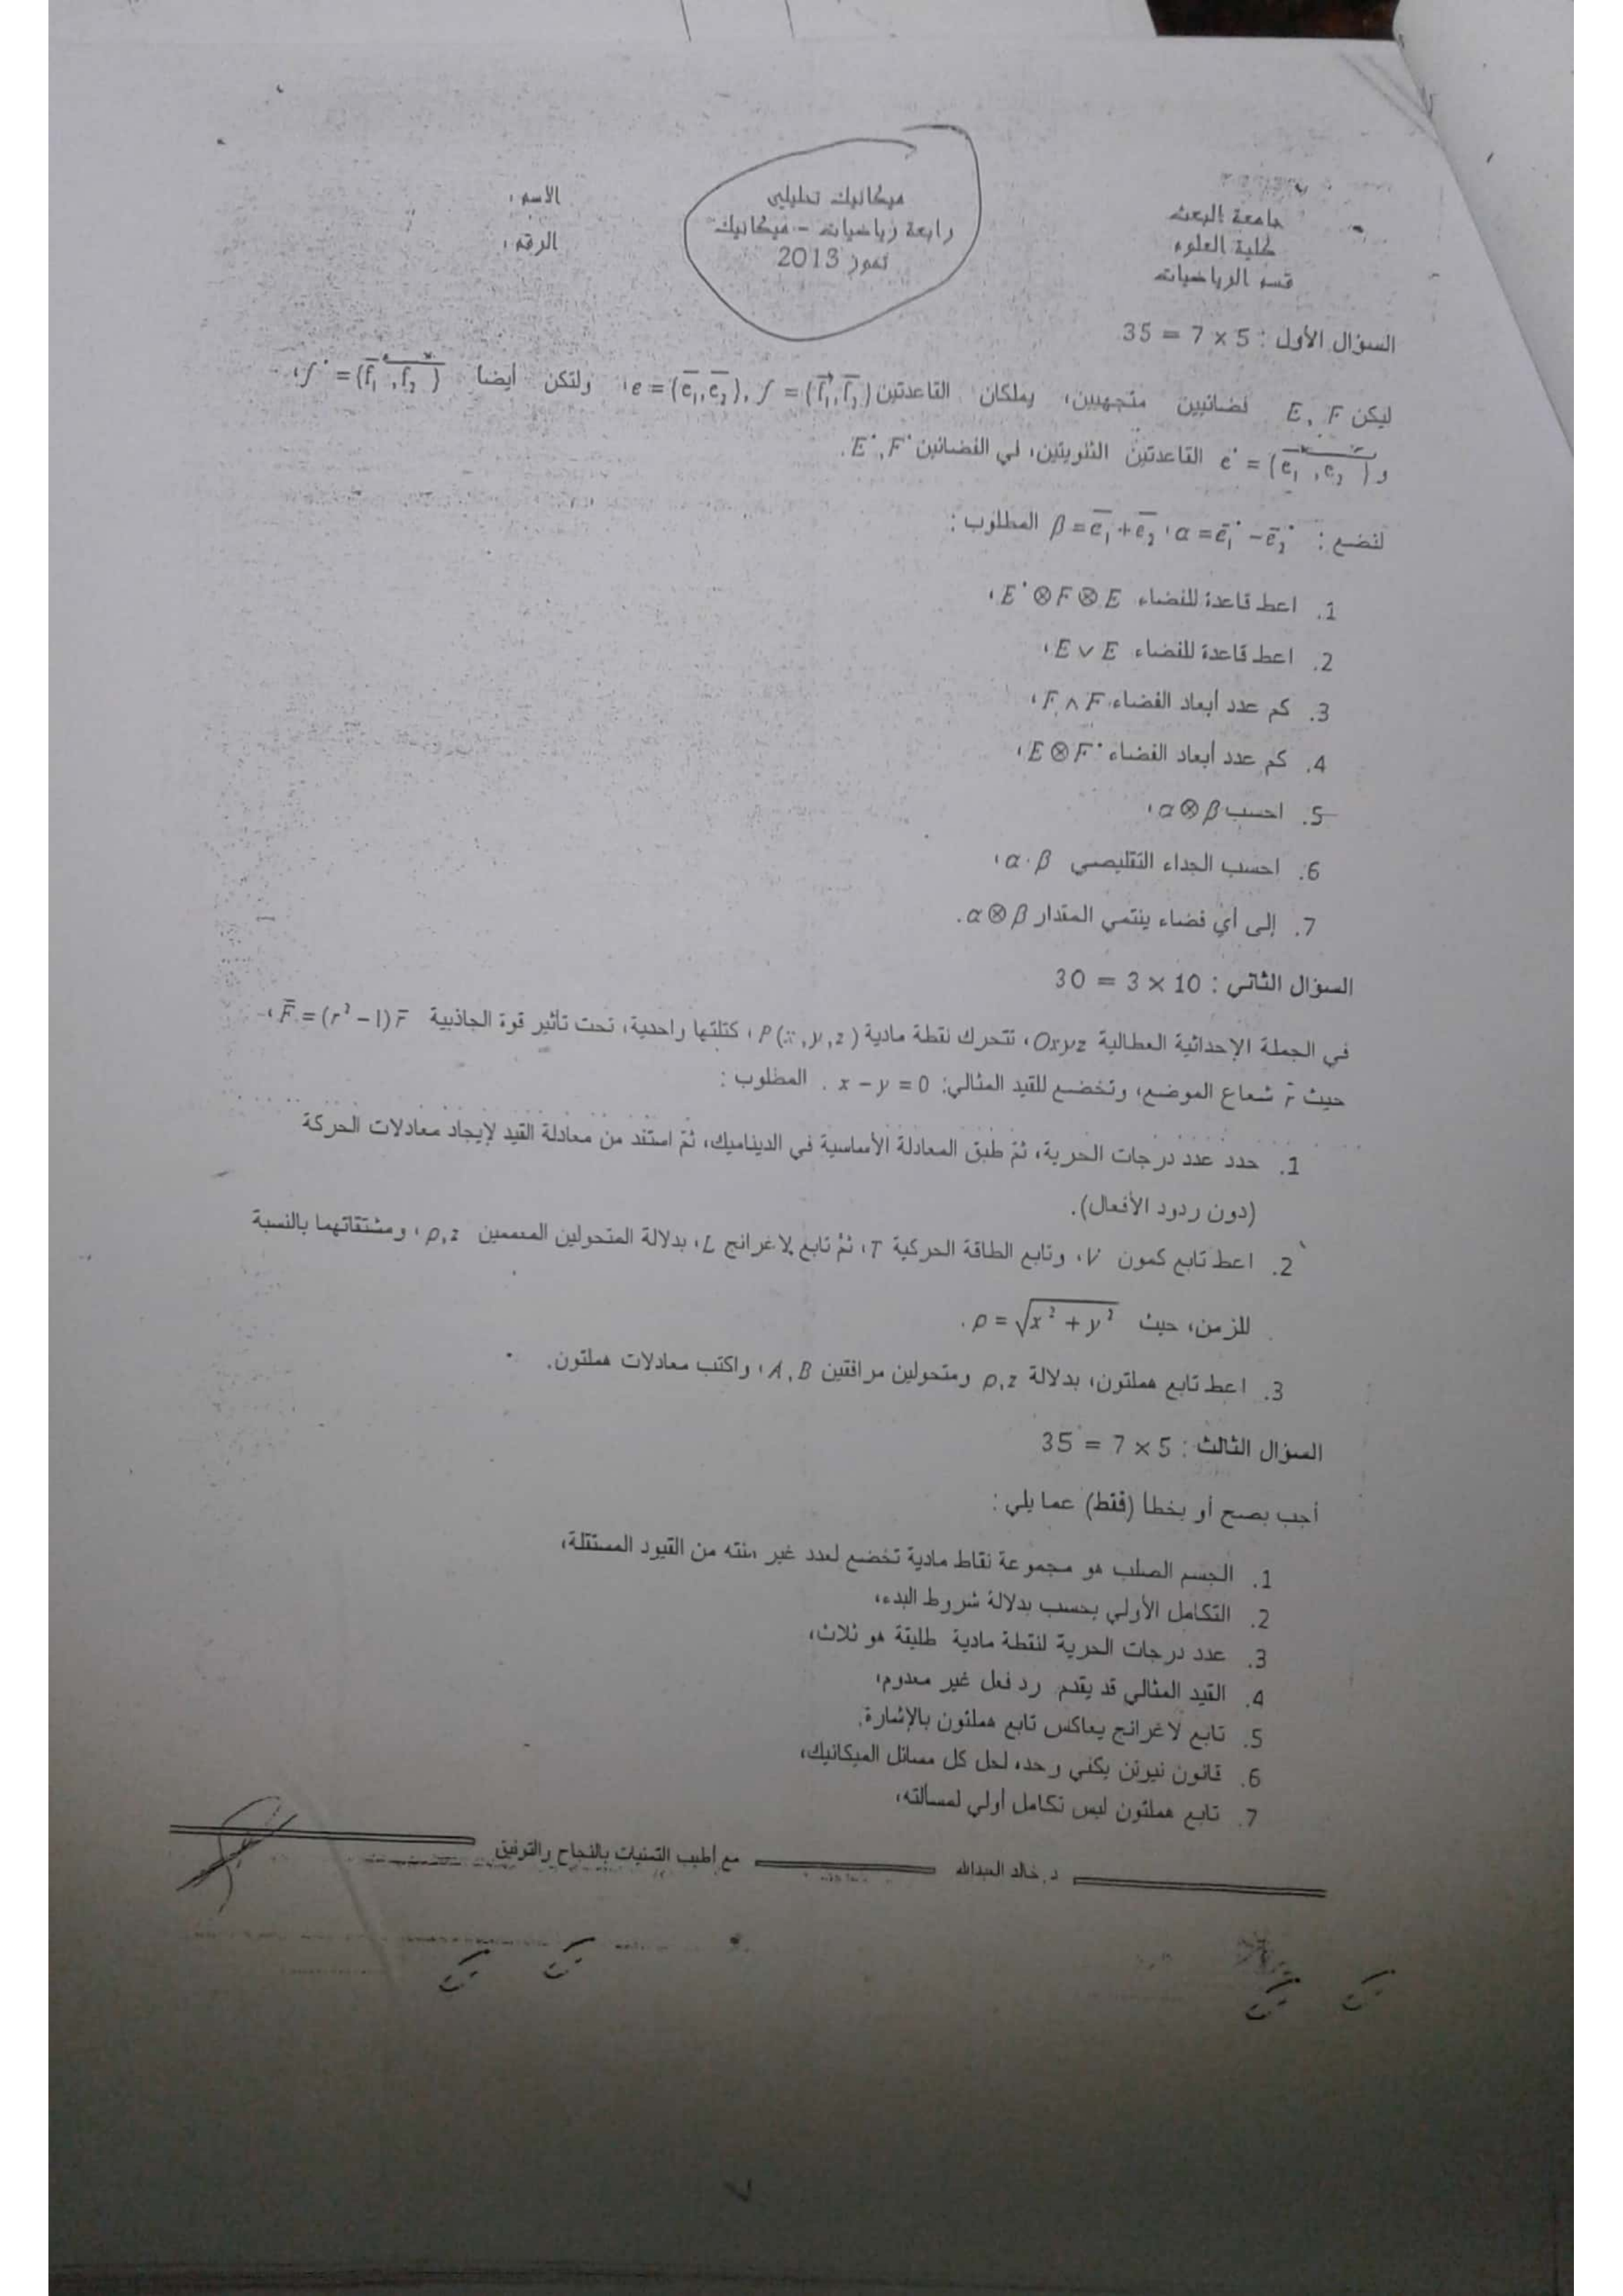 جامعة البعث
كلية العلوم
قسم الرياضيات
ميكانيك تحليلي
رابعة رياضيات - ميكانيك
تموز 2013
الاسم:
الرقم:
السؤال الأول: 5 × 7 = 35
ليكن E, F فضائيين متجهيين، يملكان القاعدتين e = (e₁, e₂), f = (f₁, f₂)، ولتكن أيضا f* = (f₁*, f₂*)،
و e* = (e₁*, e₂*) القاعدتين الثنويتين، في الفضائين E*, F*.
لنضع: α = e₁* − e₂*، β = e₁ + e₂ المطلوب:
1. اعط قاعدة للفضاء E* ⊗ F ⊗ E،
2. اعط قاعدة للفضاء E ∨ E،
3. كم عدد أبعاد الفضاء F ∧ F،
4. كم عدد أبعاد الفضاء E ⊗ F*،
5. احسب α ⊗ β،
6. احسب الجداء التقليصي α · β،
7. إلى أي فضاء ينتمي المقدار α ⊗ β.
السؤال الثاني: 10 × 3 = 30
في الجملة الإحداثية العطالية Oxyz، تتحرك نقطة مادية P(x, y, z)، كتلتها واحدية، تحت تأثير قوة الجاذبية F = (r² − 1) r،
حيث r شعاع الموضع، وتخضع للقيد المثالي: x − y = 0. المطلوب:
1. حدد عدد درجات الحرية، ثم طبق المعادلة الأساسية في الديناميك، ثم استفد من معادلة القيد لإيجاد معادلات الحركة
(دون ردود الأفعال).
2. اعط تابع كمون V، وتابع الطاقة الحركية T، ثم تابع لاغرانج L، بدلالة المتحولين المعممين ρ, z، ومشتقاتهما بالنسبة
للزمن، حيث ρ = √(x² + y²).
3. اعط تابع هملتون، بدلالة ρ, z ومتحولين مرافقتين A, B، واكتب معادلات هملتون.
السؤال الثالث: 5 × 7 = 35
أجب بصح أو بخطأ (فقط) عما يلي:
1. الجسم الصلب هو مجموعة نقاط مادية تخضع لعدد غير منته من القيود المستقلة،
2. التكامل الأولي يحسب بدلالة شروط البدء،
3. عدد درجات الحرية لنقطة مادية طليقة هو ثلاث،
4. القيد المثالي قد يقدم رد فعل غير معدوم،
5. تابع لاغرانج يعاكس تابع هملتون بالإشارة،
6. قانون نيوتن يكفي وحده لحل كل مسائل الميكانيك،
7. تابع هملتون ليس تكامل أولي لمسألته،
د. خالد العبدالله مع أطيب التمنيات بالنجاح والتوفيق